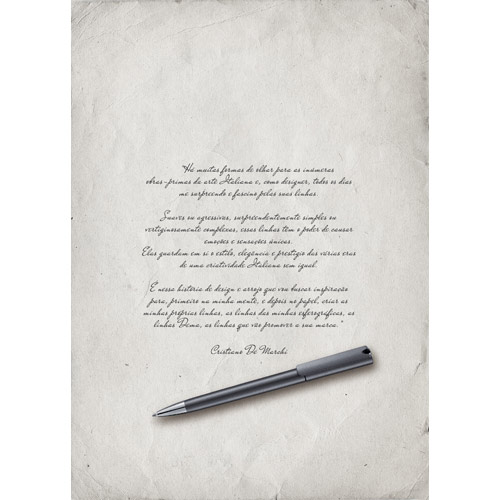 "Há muitas formas de olhar para as inúmeras
obras-primas da arte Italiana e, como designer, todos os dias
me surpreendo e fascino pelas suas linhas.
Suaves ou agressivas, surpreendentemente simples ou
vertiginosamente complexas, essas linhas têm o poder de causar
emoções e sensações únicas.
Elas guardam em si o estilo, elegância e prestígio das várias eras
de uma criatividade Italiana sem igual.
E nessa história de design e arrojo que vou buscar inspiração
para, primeiro na minha mente, e depois no papel, criar as
minhas próprias linhas, as linhas das minhas esferográficas, as
linhas Dema, as linhas que vão promover a sua marca."
Cristiano De Marchi